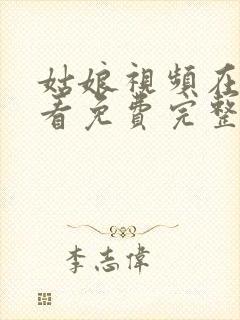 姑娘視頻在
看免費完整
李志偉